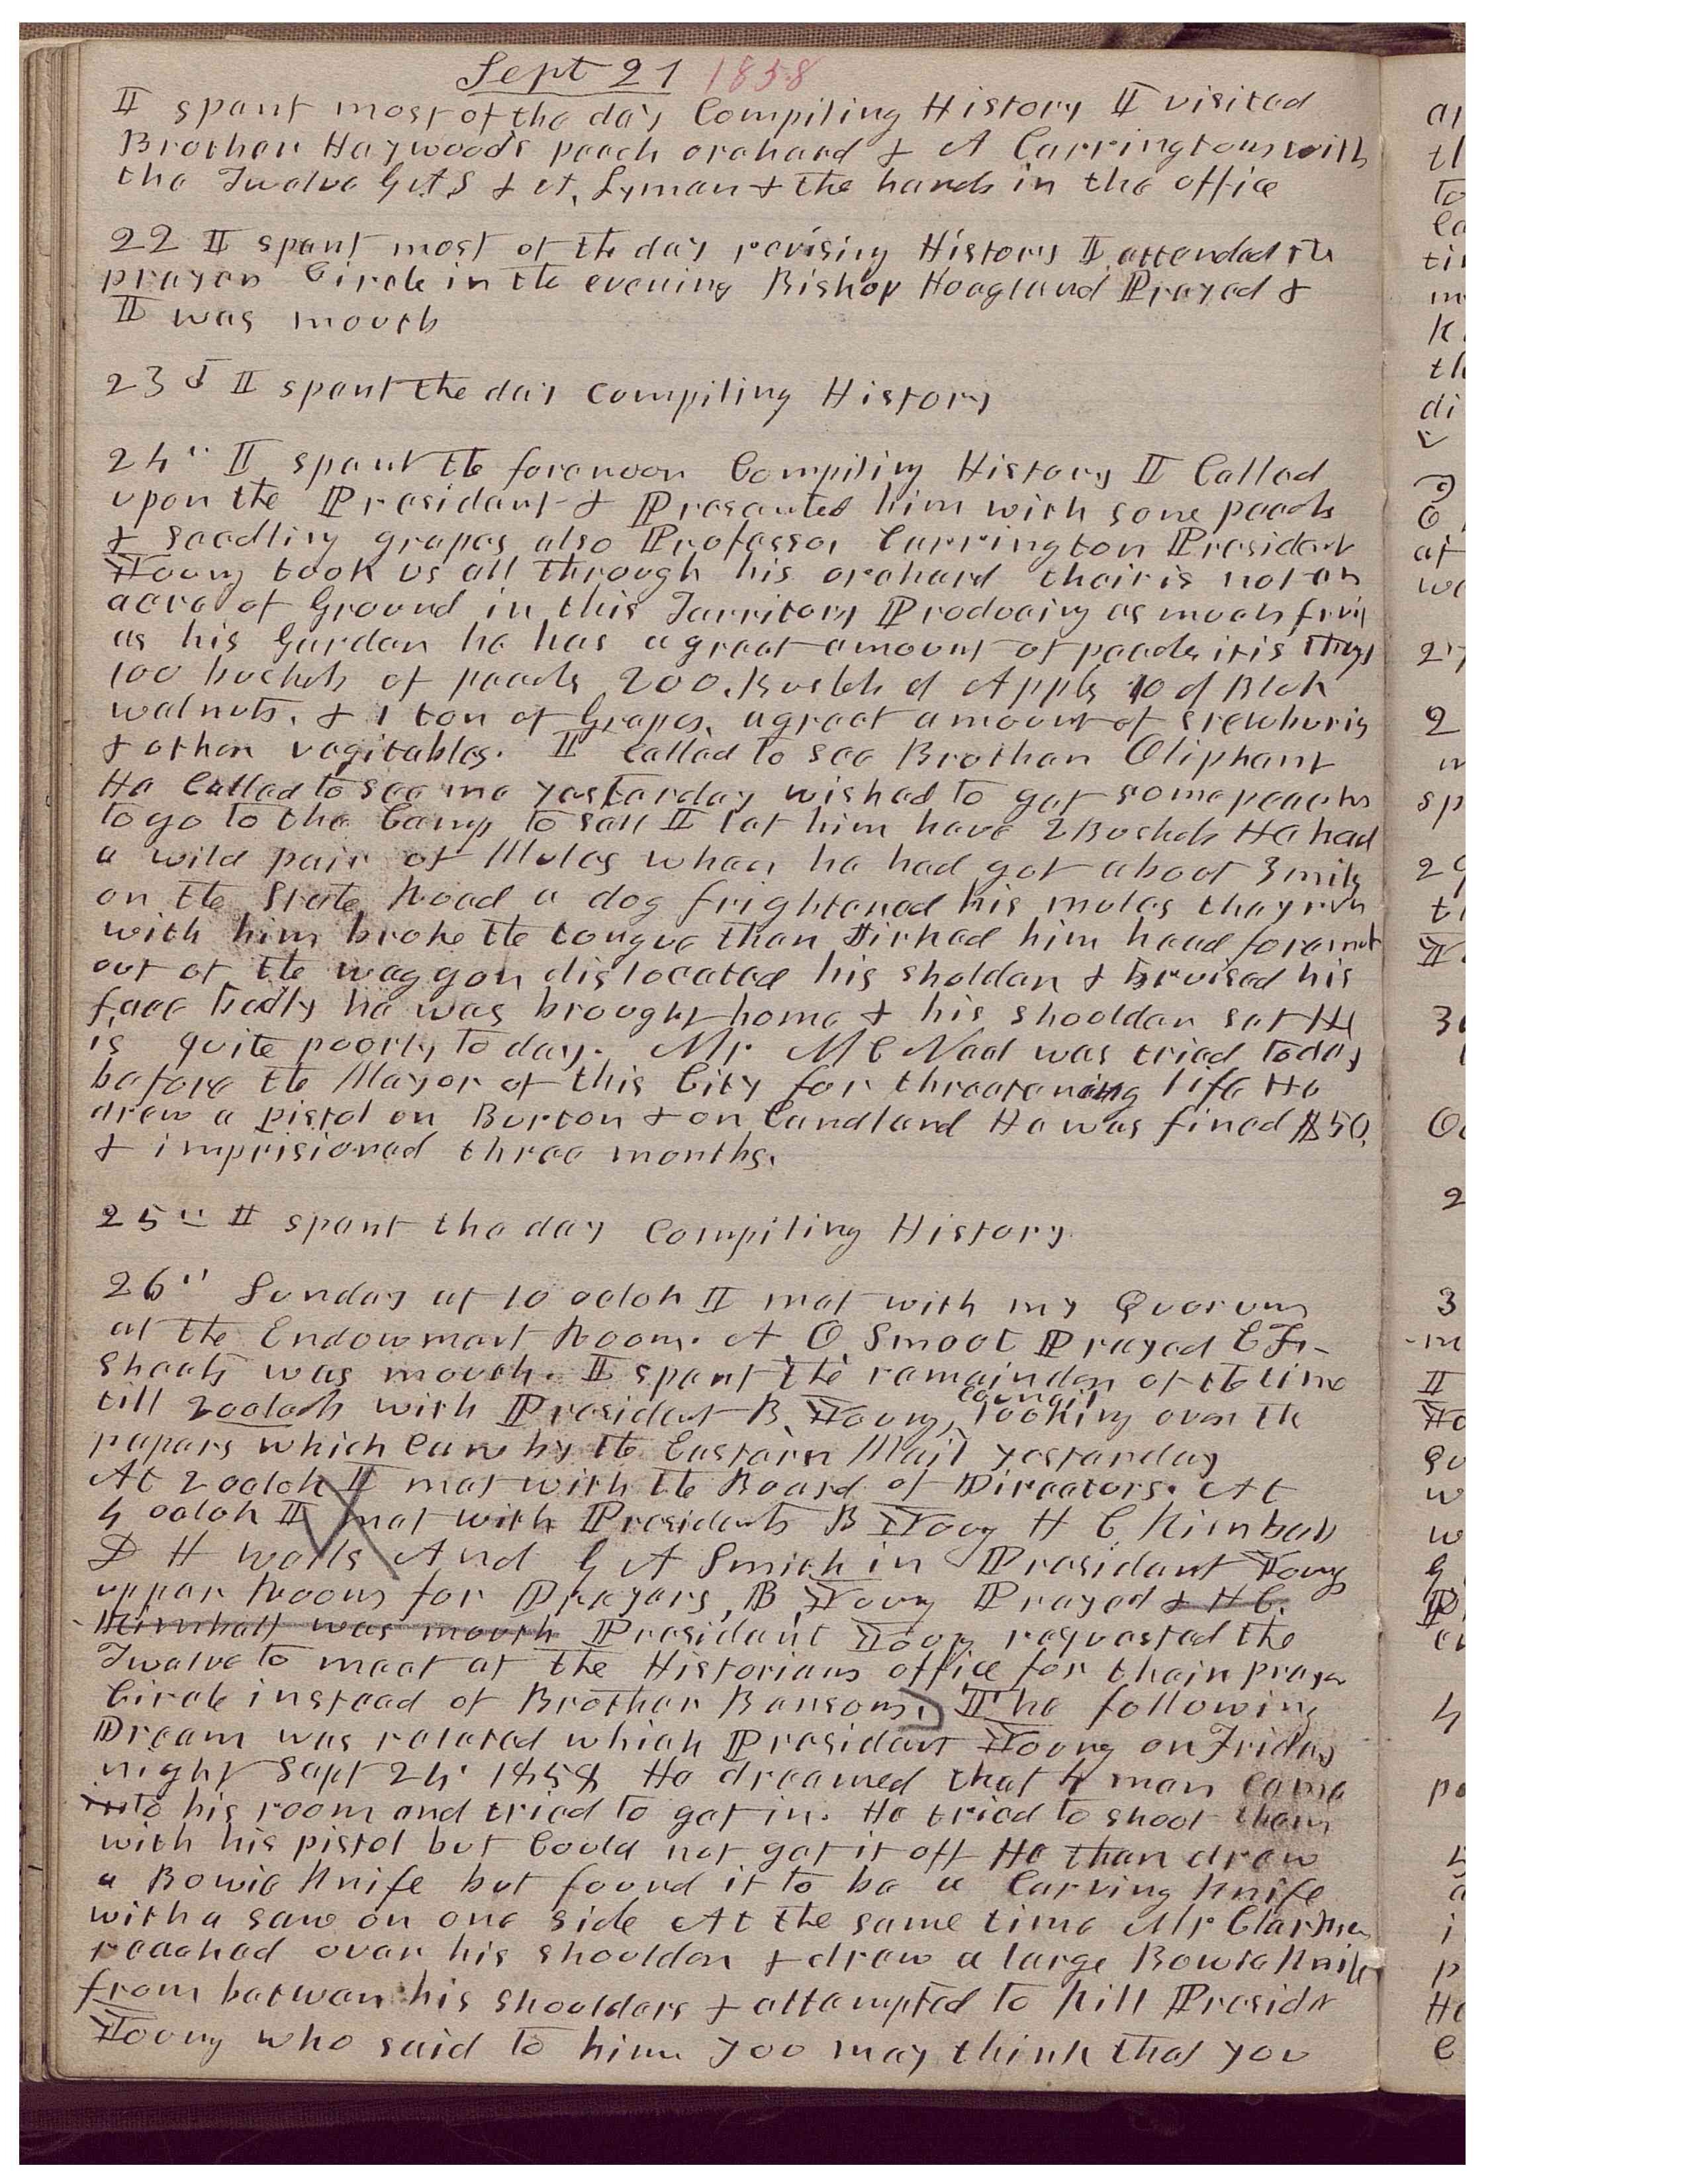 Sept 21 1858
I spent most of the day Compiling History I visited
Brother Haywoods peach orchard & A Carringtons with
the Twelve G A S & A. Lyman & the hands in the office
22 I spent most of the day revising History I attended the
prayer Circle in the evening Bishop Hoagland Prayed &
I was mouth
23d I spent the day Compiling History
24" I spent the forenoon Compiling History I Called
upon the President & Presented him with some peachs
& seedling grapes also Professor Carrington President
Young took us all through his orchard their is not an
acre of Ground in this Territory Producing as much fruit
as his Garden he has a great amount of peachs it is
100 bushels of peachs 200. Bushels of Apples 10 of Black
walnuts. & 1 ton of Grapes. a great amount of strewburis
& other vegitables. I called to see Brother Oliphant
He Called to see me yesterday wished to get some peachs
to go to the Camp to sell I let him have 2 Bushels He had
a wild pair of Mules when he had got about 3 miles
on the State Road a dog frightened his mules they run
with him broke the tongue then Pitched him head foremost
out of the waggon dislocated his sholder & bruised his
face badly he was brought home & his shoolder set He
is quite poorly to day. Mr McNeal was tried to day
before the Mayor of this City for threatening life He
drew a pistol on Burton & on Candland He was fined $50,
& imprisioned three months.
25" I spent the day Compiling History
26" Sunday at 10 oclok I met with my Quorum
at the Endowment Room. A O Smoot Prayed E F
Sheets was mouth. I spent the remainder of the time
till 2 oclock with President B. Young, council looking over the
papers which Came by the Eastern Mail yesterday
At 2 oclok I met with the Board of Directors. At
4 oclok I met with Presidents B Young H C Kimball
D H Wells And G A Smith in President Young
upper Room for Prayers, B, Young Prayed & H C.
Kimball was mouth President Young requested the
Twelve to meet at the Historians office for their prayer
Circle instead of Brother Bensons. The following
Dream was related which President Young on Friday
night Sept 24. 1858 He dreamed that 4 men came
into his room and tried to get in. He tried to shoot them
with his pistol but Could not get it off He then drew
a Bowie Knife but found it to be a Carving Knife
with a saw on one side At the same time Mr
reached over his shoolder & drew a large Bowie Knife
from betwen his shoolders & attempted to kill President
Young who said to him you may think that you